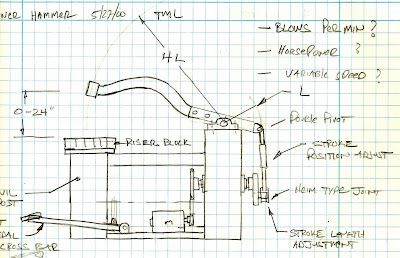 WER HAMMER 5/27/00 TML
— BLOWS PER MIN ?
— HORSEPOWER ?
— VARIABLE SPEED ?
4L
L
0-24"
DOUBLE PIVOT
RISER BLOCK
STROKE
POSITION ADJUST
VIL
POST
HEIM TYPE JOINT
M
T
DAL
CROSS BAR
STROKE LENGTH
ADJUSTMENT